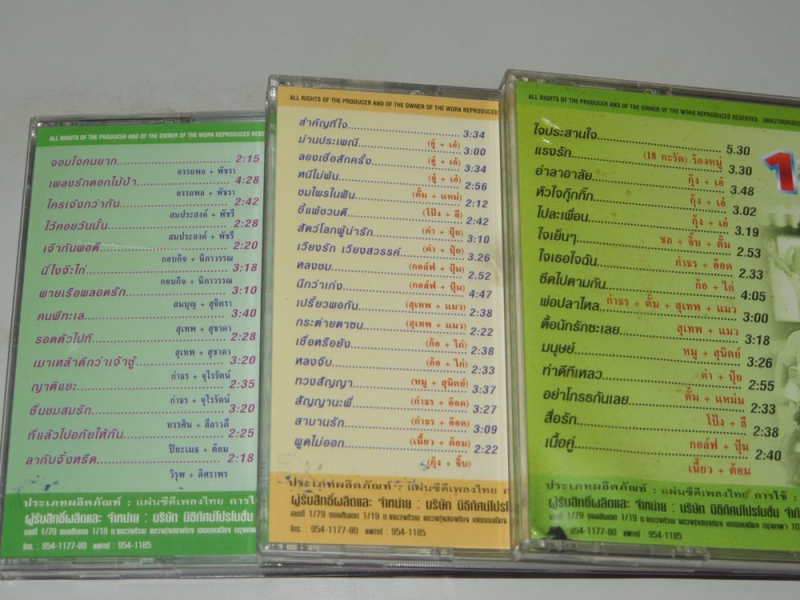 ALL RIGHTS OF THE PRODUCER AND OF THE OWNER OF THE WORK REPRODUCED RESE
จอมใจคนยาก 2:15
อรรถพล + พัชรา
เพลงรักดอกไม้ป่า 4:28
อรรถพล + พัชรา
ใครเจ๋งกว่ากัน 2:42
สมประสงค์ + พัชรี
ไว้คอยวันนั้น 2:28
สมประสงค์ + พัชรี
เจ้ากันพอดี 2:20
กอบกิจ + นิภาวรรณ
นี่ไงจ๊ะไก่ 3:18
กอบกิจ + นิภาวรรณ
พายเรือพลอดรัก 3:10
สมบุญ + สุจิตรา
คนผีทะเล 3:40
สุเทพ + สุชาดา
รอดตัวไปที 2:28
สุเทพ + สุชาดา
เมาเหล้าดีกว่าเจ้าชู้ 3:20
กำธร + อุไรรัตน์
ญาติแยะ 2:35
กำธร + อุไรรัตน์
ชื่นชมสมรัก 3:20
ทรรศิน + ลีลาวดี
ที่แล้วไปอภัยให้กัน 2:25
ปิยะเมธ + ต้อม
ลากับจิ้งหรีด 2:18
วิรุฬ + ดิศราพร
ประเภทผลิตภัณฑ์ : แผ่นซีดีเพลงไทย
ผู้รับสิทธิ์ผลิตและ จำหน่าย : บริษัท นิธิทัศน์โปรโมชั่น
เลขที่ 1/79
โทร. : 954-1177-80 แฟกซ์ : 954-1185
ALL RIGHTS OF THE PRODUCER AND OF THE OWNER OF THE WORK REPRODUCED
สำคัญที่ใจ 3:34
(อู๋ + เอ๋)
ม่านประเพณี 3:00
(อู๋ + เอ๋)
ลองเชื่อสักครั้ง 3:34
(อู๋ + เอ๋)
หนีไม่พ้น 2:56
(ตั้ม + แหม่)
ชมไพรในฝัน 2:12
(โป้ง + ลี)
ขี้แพ้ชวนตี 2:42
(ดำ + ปุ้ย)
สัตว์โลกผู้น่ารัก 3:10
(ดำ + ปุ้ย)
เวียงรัก เวียงสวรรค์ 3:26
(กอล์ฟ + ปุ้ม)
หลงชม 2:52
(กอล์ฟ + ปุ้ม)
นึกว่าเก่ง 4:47
(สุเทพ + แมว)
เปรี้ยวพอกัน 2:38
(สุเทพ + แมว)
กระต่ายตาชน 2:22
(ก้อ + ไก่)
เชื่อหรือยัง 2:38
(ก้อ + ไก่)
หลงจีบ 2:33
(หมู + สุนิตย์)
ทวงสัญญา 3:37
(กำธร + อ๊อด)
สัญญานะพี่ 3:27
(กำธร + อ๊อด)
สาบานรัก 3:09
(เนี้ยว + ต้อม)
พูดไม่ออก 2:22
(กุ้ง + จิ๊บ)
ประเภทผลิตภัณฑ์ : แผ่นซีดีเพลงไทย
ผู้รับสิทธิ์ผลิตและ จำหน่าย : บริษัท นิธิทัศน์โปรโมชั่น
เลขที่ 1/79
โทร. : 954-1177-80 แฟกซ์ : 954-1185
ALL RIGHTS OF THE PRODUCER AND OF THE OWNER OF THE WORK REPRODUCED RESERVED. UNAUTHORISED
ใจประสานใจ 5.30
(18 กะรัต) ร้องหมู่
แรงรัก 3.30
กุ้ง + เอ๋
อำลาอาลัย 3.48
กุ้ง + เอ๋
หัวใจกุ๊กกิ๊ก 3.02
กุ้ง + เอ๋
ไปละเพื่อน 3.19
ชล + จิ๊บ + ตั้ม
ใจเย็นๆ 2.53
กำธร + อ๊อด
ใจเธอใจฉัน 2.33
ก้อ + ไก่
ชีดไปตามกัน 4:05
กำธร + ตั้ม + สุเทพ + แมว
พ่อปลาไหล 3:00
สุเทพ + แมว
ตื้อนักรักซะเลย 3:18
หมู + สุนิตย์
มนุษย์ 3:26
ดำ + ปุ้ย
ท่าดีทีเหลว 2:55
ตั้ม + แหม่ม
อย่าโกรธกันเลย 2:33
โป้ง + ลี
สื่อรัก 2:38
กอล์ฟ + ปุ้ม
เนื้อคู่ 2:40
เนี้ยว + ต้อม
1
ประเภทผลิตภัณฑ์ : แผ่นซีดีเพลงไทย การใช้ :
ผู้รับสิทธิ์ผลิตและ จำหน่าย : บริษัท นิธิทัศน์โปรโมชั่น จำกั
เลขที่ 1/79
โทร. : 954-1177-80 แฟกซ์ : 954-1185